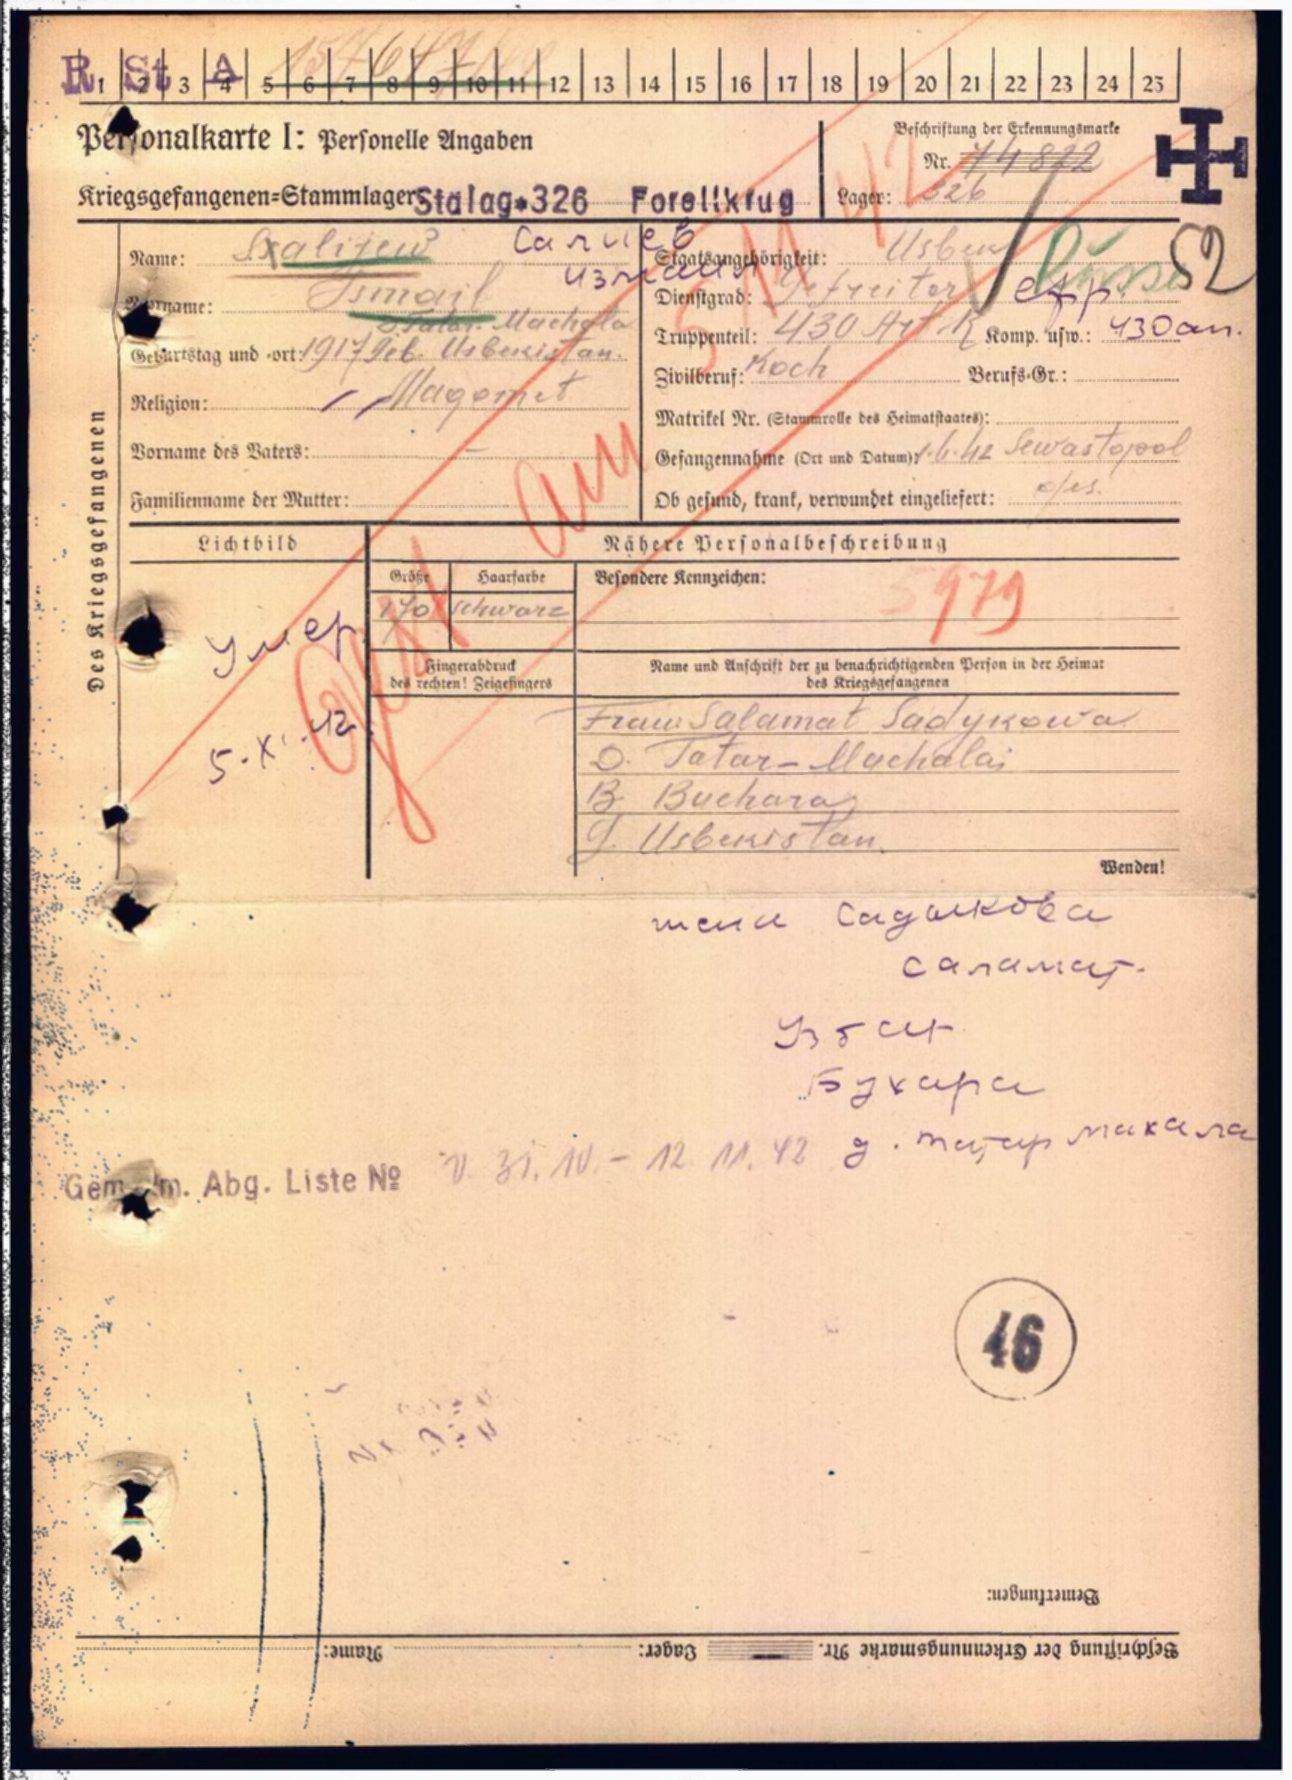 R. St. A
1 2 3 4 5 6 7 8 9 10 11 12 13 14 15 16 17 18 19 20 21 22 23 24 25
Personalkarte I: Personelle Angaben
Beschriftung der Erkennungsmarke
Nr. 74822
Kriegsgefangenen-Stammlager: Stalag 326 Forellkrug
Lager: 326
52
Name: Ssalijew Салиев
Staatsangehörigkeit: Usbek Russe
Vorname: Ismail Измаил
Dienstgrad: Gefreiter ефр.
D. Tatar-Machala
Geburtstag und -ort: 1917 Geb. Usbekistan.
Truppenteil: 430 Art. R Komp. usw.: 430 ап.
Zivilberuf: Koch Berufs-Gr.:
Religion: Magomet
Matrikel Nr. (Stammrolle des Heimatstaates):
Vorname des Vaters: -
Gefangennahme (Ort und Datum): 1.6.42 Sewastopol
Familienname der Mutter:
Ob gesund, krank, verwundet eingeliefert: ges.
Des Kriegsgefangenen
Gest am 5.11.42
Lichtbild
Nähere Personalbeschreibung
Größe Haarfarbe Besondere Kennzeichen:
170 schwarz
5979
умер
5.XI.42
Fingerabdruck
des rechten! Zeigefingers
Name und Anschrift der zu benachrichtigenden Person in der Heimat
des Kriegsgefangenen
Frau: Salamat Sadykowa
D. Tatar-Machalai
B. Buchara
G. Usbekistan.
Wenden!
жена Садыкова
Саламат.
Узбек
Бухара
д. татар макала
Gem. Im. Abg. Liste № v. 31.10.-12.11.42
46
Bemerkungen:
Beschriftung der Erkennungsmarke Nr. Lager: Name: